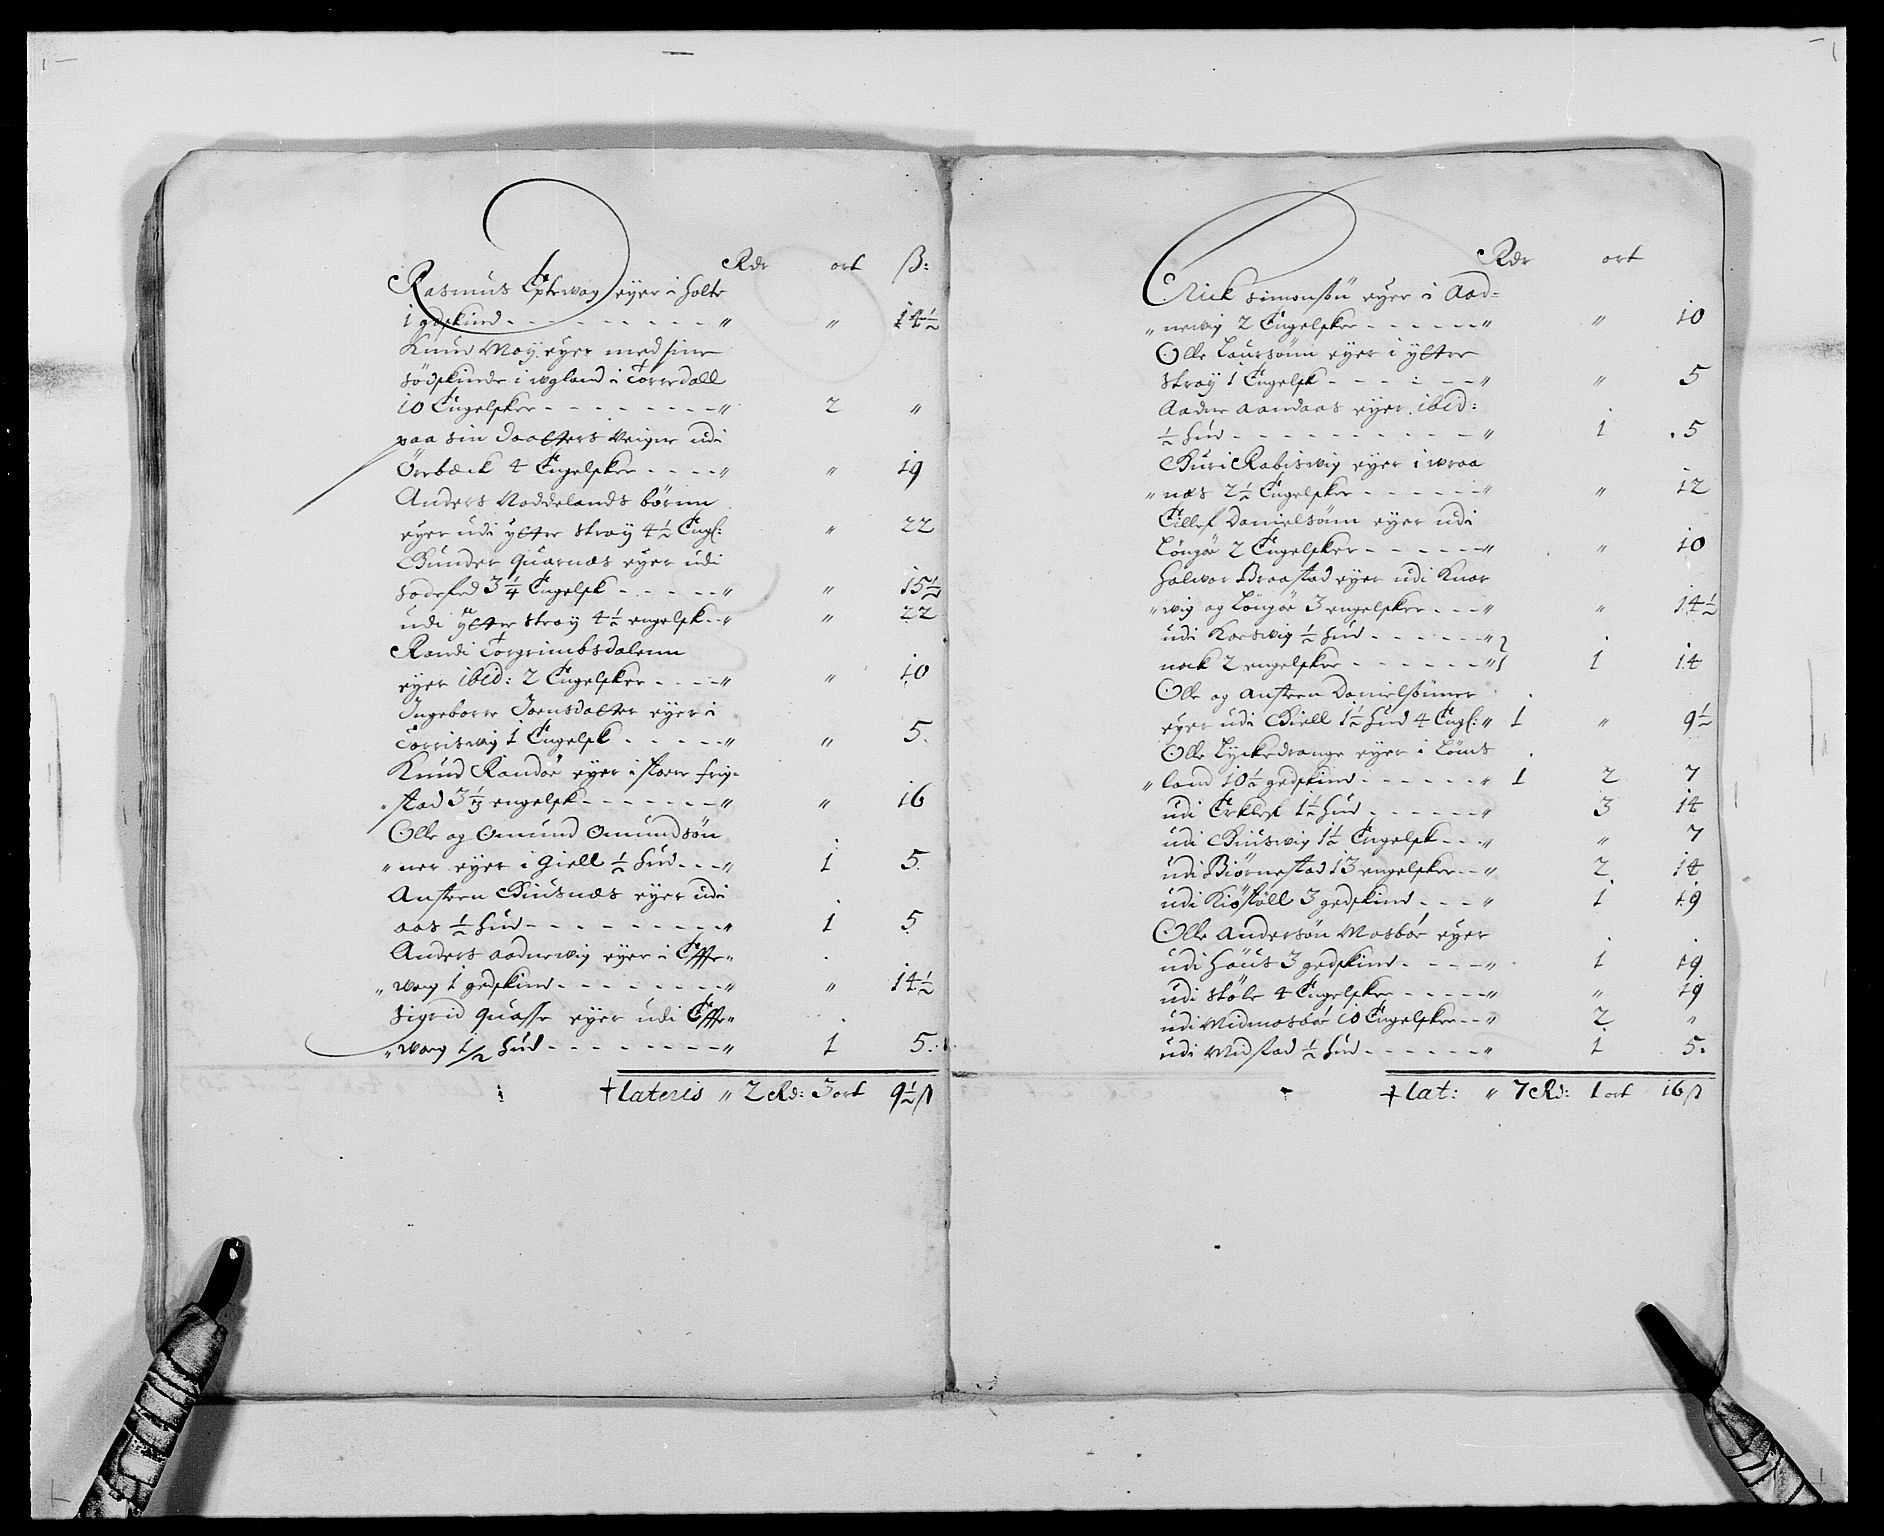 Rdr ort ß:
Rasmus Epterwog eyer i holte
1 gedskind - - - " " 14½
Knud Moÿ eyer med sine
södskinde i uglend i Torredall
10 Engelsker - - - " 2 "
paa sin Daatters Veigne udi
Örebæck 4 Engelsker - - - " " 19
Anders Noddelands börnn
eyer udi ytter Strøy 4½ Engl: " 22
Gunder Quarnæs eyer udi
sodefed 3¼ Engelsk - - - " " 15½
udi Ytter Strøy 4½ engelsk - - " " 22
Randi Torgrimbsdalenn
eyer ibid: 2 Engelsker - - - " " 10
Ingeborre Joensdatter eyer i
Torriswig 1 Engelsk - - - " " 5
Knud Randöe eyer i store frig-
" stad 3⅓ engelsk - - - " " 16
Olle og Omund Omundsön
" ner eyer i Giell ½ hud - - - " 1 5
Ansteen Biusnæs eyer udi
aas ½ hud - - - " 1 5
Anders aadnewig eyer i Effte"
" vog 1 gedskind - - - " " 14½
Sigrid Quasse eyer udi Effte"
" vog 1/2 hud - - - " 1 5
lateris " 2 Rd: 3 ort 9½ ß
Rdr ort
Erick simonsön eyer i Aad=
" newig 2 Engelsker - - - " " 10
Olle Laursönn eyer i ytter
Strøy 1 Engelsk - - - " " 5
Aadne aandaas eyer ibid:
½ hud - - - " 1 5
Guri Rabiswig eyer i wraa
" næs 2½ Engelsker - - - " " 12
Eillef Danielsönn eyer udi
Löngöe 2 Engelsker - - - " " 10
halwor Braastad eyer udi Knar
" wig og Löngöe 3 engelsker - - - " " 14½
udi Korswig ½ hud - - - "
nock 2 engelsker - - - " 1 14
Olle og Ansteen Danielsönner
eyer udi Giell 1½ hud 4 Engl: " 1 " 9½
Olle Lyckedrange eyer i Löms
" land 10½ gedskind - - - " 1 2 7
udi Erklef 1½ hud - - - " 3 14
udi Biuswig 1½ Engelsk - - - " " 7
udi Biörnestad 13 engelsker - - " 2 14
udi Kiöstöll 3 gedskind - - - " 1 19
Olle Andersön Mosböe eyer
udi höus 3 gedskind - - - " 1 19
udi Stöle 4 Engelsker - - - " " 19
udi Midmosböe 10 Engelsker - - " 2 "
udi Midstad ½ hud - - - " 1 5
lat: " 7 Rd: 1 ort 16 ß